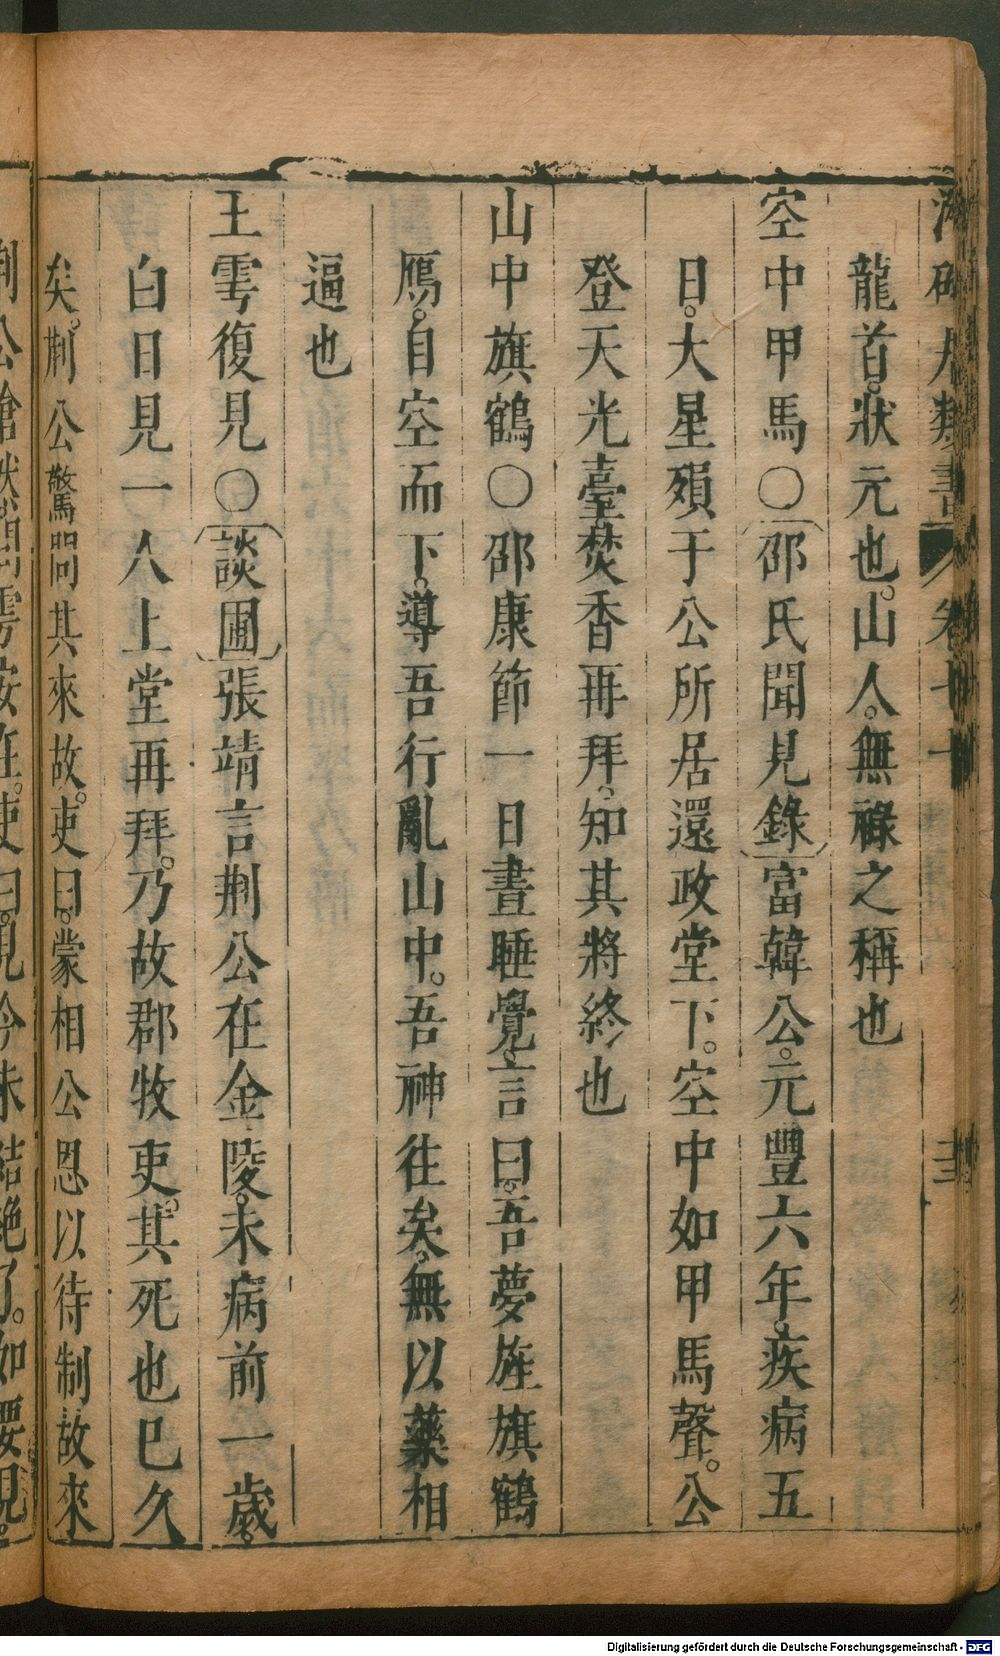 類書 卷
龍首。狀元也。山人。無祿之稱也
空中甲馬〇邵氏聞見錄富韓公。元豐六年。疾病五
日。大星殞于公所居還政堂下。空中如甲馬聲。公
登天光臺焚香再拜。知其將終也
山中旗鶴〇邵康節一日晝睡覺。言曰。吾夢旌旗鶴
鴈。自空而下。導吾行亂山中。吾神往矣。無以藥相
逼也
王雱復見〇談圃張靖言荆公在金陵。未病前一歲。
白日見一人上堂再拜。乃故郡牧吏。其死也已久
矣。荆公驚問其來故。吏曰。蒙相公恩以待制故來
荆公愴然問雱安在。吏曰。見今未結絶了。如要見。
Digitalisierung gefördert durch die Deutsche Forschungsgemeinschaft - DFG